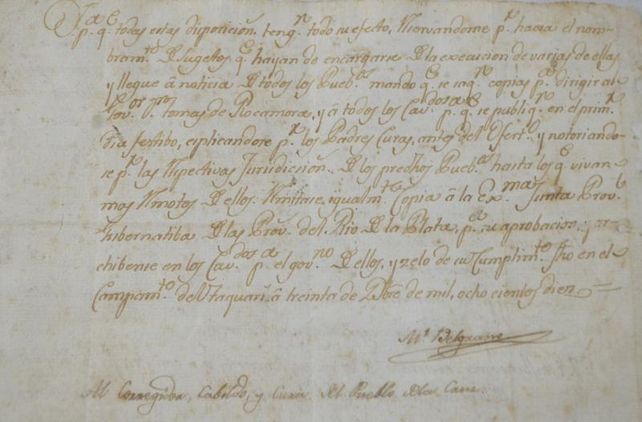 Y p.ª q.e todas estas disposicion.s teng.n todo su efecto, reservandome p.r haora el nom-
bram.to de sugetos q.e hayan de encargarse de la execucion de varias de ellas
y llegue â noticia de todos los Pueb.s mando q.e se saq.n copias p.a dirigir al
Gov.or D.n tomas de Rocamora, y â todos los Cav.dos p.a q.e se publiq.n en el prim.r
dia festibo, esplicandose p.r los Padres Curas, antes del Ofert.o y notoriando-
se p.r las respectivas Jurisdicion.s de los predhos Pueb.s hasta los q.e vivan
mas remotos de ellos. Remitase, igualm.te Copia â la Ex.ma Junta Prov.l
Gubernatiba de las Prov.s del Rio de la Plata, p.a su aprobacion, y ar-
chibense en los Cav.dos p.a el gov.no de ellos, y zelo de su Cumplim.to fho en el
Campam.to del Taquari â treinta de Dbre de mil, ocho cientos diez =
M.l Belgrano
Al Corregidor, Cabildo, y Cura del Pueblo dela Cruz.